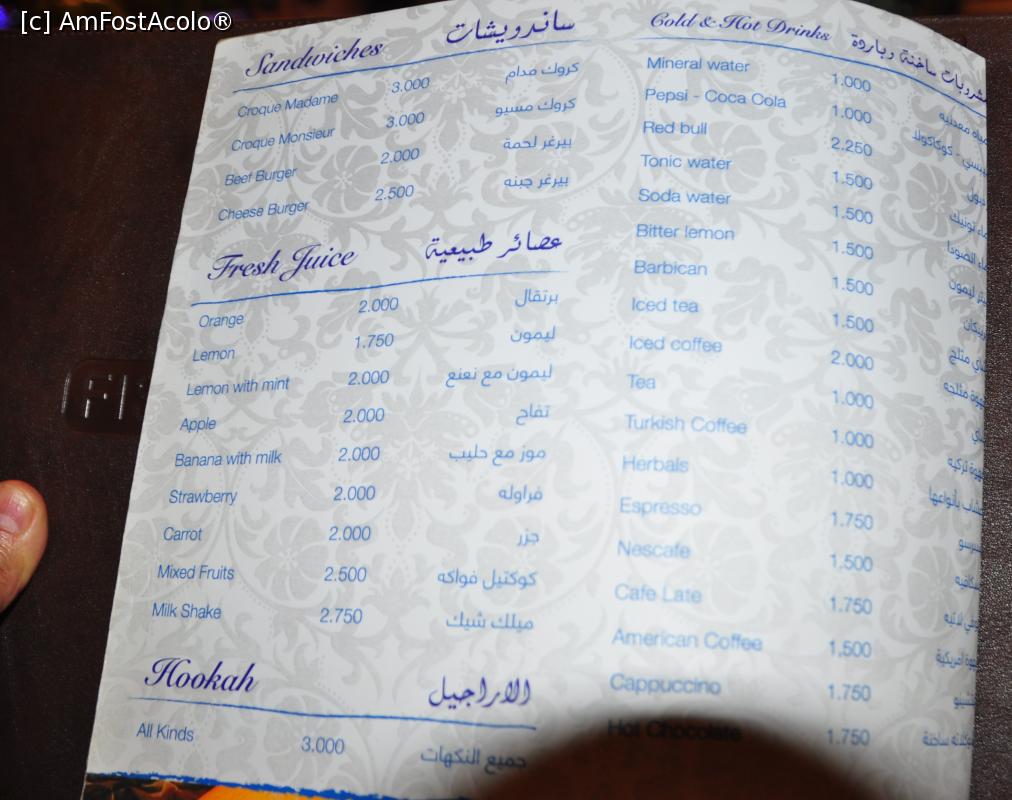 [c] AmFostAcolo®
Sandwiches ساندويشات
Croque Madame 3.000 كروك مدام
Croque Monsieur 3.000 كروك مسيو
Beef Burger 2.000 بيرغر لحمة
Cheese Burger 2.500 بيرغر جبنه
Fresh Juice عصائر طبيعية
Orange 2.000 برتقال
Lemon 1.750 ليمون
Lemon with mint 2.000 ليمون مع نعنع
Apple 2.000 تفاح
Banana with milk 2.000 موز مع حليب
Strawberry 2.000 فراوله
Carrot 2.000 جزر
Mixed Fruits 2.500 كوكتيل فواكه
Milk Shake 2.750 ميلك شيك
Hookah الاراجيل
All Kinds 3.000 جميع النكهات
Cold & Hot Drinks مشروبات ساخنة وباردة
Mineral water 1.000 معدنيه
Pepsi - Coca Cola 1.000 - كوكاكولا
Red bull 2.250
Tonic water 1.500 تونيك
Soda water 1.500 الصودا
Bitter lemon 1.500 ليمون
Barbican 1.500
Iced tea 1.500 مثلج
Iced coffee 2.000 مثلجه
Tea 1.000
Turkish Coffee 1.000 تركيه
Herbals 1.000 بأنواعها
Espresso 1.750
Nescafe 1,500
Cafe Late 1.750 لاتيه
American Coffee 1,500 امريكية
Cappuccino 1.750
Hot Chocolate 1.750 ساخنة